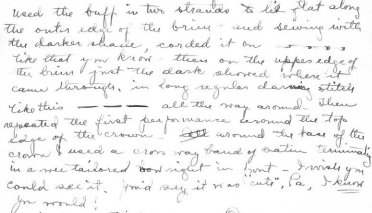 used the buff in two strands to lie flat along
the outer edge of the brim and sewing with
the darker shade, corded it on
like that you know - then on the upper edge of
the brim just the dark showed where it
came through, in long regular darning stitch
like this — — — all the way around. Then
repeated the first performance around the top
edge of the crown around the base of the
crown I used a cross way band of satin terminating
in a wee tailored bow right in front - I wish you
could see it. You'd say it was "cute", Pa, I know
you would!